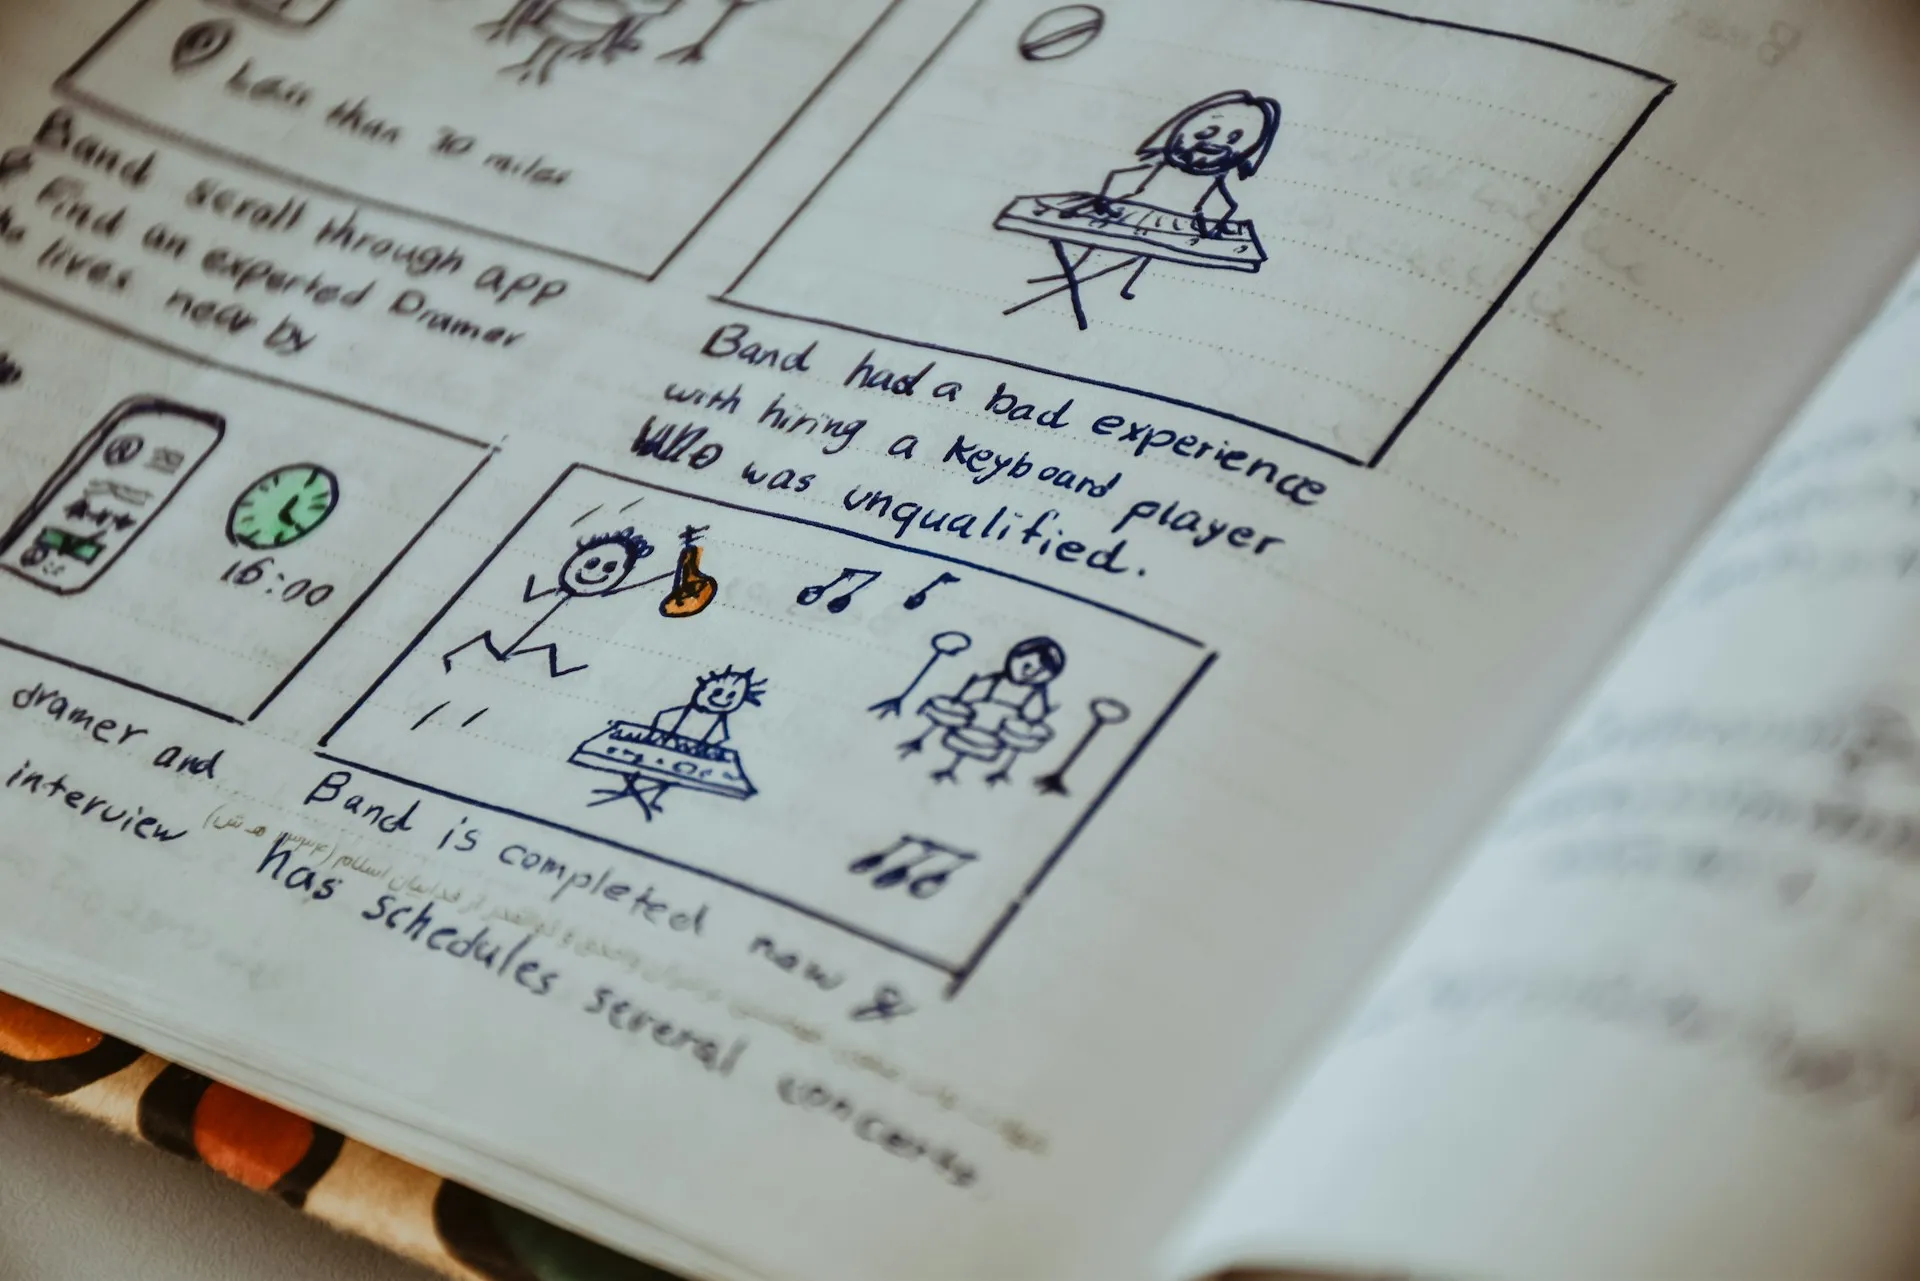 Less than 30 miles
Band scroll through app
Find an experted Dramer
lives near by
Band had a bad experience
with hiring a keyboard player
who was unqualified.
16:00
dramer and
interview
Band is completed now &
has schedules several concerts